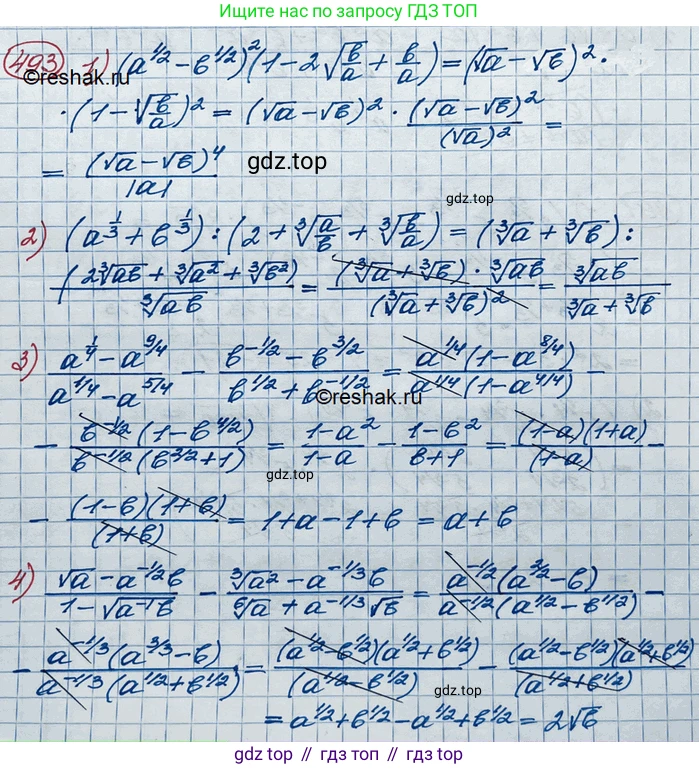 Ищите нас по запросу ГДЗ ТОП
493 1) (a^{1/2} - b^{1/2})^2 (1 - 2√(b/a) + b/a) = (√a - √b)^2 ·
©reshak.ru
· (1 - √(b/a))^2 = (√a - √b)^2 · (√a - √b)^2/(√a)^2 =
= (√a - √b)^4/|a|
gdz.top
gdz.top
2) (a^{1/3} + b^{1/3}) : (2 + ∛(a/b) + ∛(b/a)) = (∛a + ∛b) :
(2∛ab + ∛a^2 + ∛b^2)/∛ab = (∛a + ∛b) · ∛ab/(∛a + ∛b)^2 = ∛ab/(∛a + ∛b)
3) (a^{1/4} - a^{9/4})/(a^{1/4} - a^{5/4}) - (b^{-1/2} - b^{3/2})/(b^{1/2} + b^{-1/2}) = a^{1/4}(1 - a^{8/4})/(a^{1/4}(1 - a^{4/4})) -
©reshak.ru
- b^{-1/2}(1 - b^{4/2})/(b^{-1/2}(b^{2/2} + 1)) = (1 - a^2)/(1 - a) - (1 - b^2)/(b + 1) = (1-a)(1+a)/(1-a) -
gdz.top
- (1 - b)(1 + b)/(1 + b) = 1 + a - 1 + b = a + b
4) (√a - a^{-1/2}b)/(1 - √(a^{-1}b)) - (∛a^2 - a^{-1/3}b)/(⁶√a + a^{-1/3}√b) = a^{-1/2}(a^{2/2} - b)/(a^{-1/2}(a^{1/2} - b^{1/2})) -
- a^{-1/3}(a^{3/3} - b)/(a^{-1/3}(a^{1/2} + b^{1/2})) = (a^{1/2} - b^{1/2})(a^{1/2} + b^{1/2})/(a^{1/2} - b^{1/2}) - (a^{1/2} - b^{1/2})(a^{1/2} + b^{1/2})/(a^{1/2} + b^{1/2})
gdz.top
= a^{1/2} + b^{1/2} - a^{1/2} + b^{1/2} = 2√b
gdz.top // гдз.топ // gdz.top // гдз.топ // gdz.top